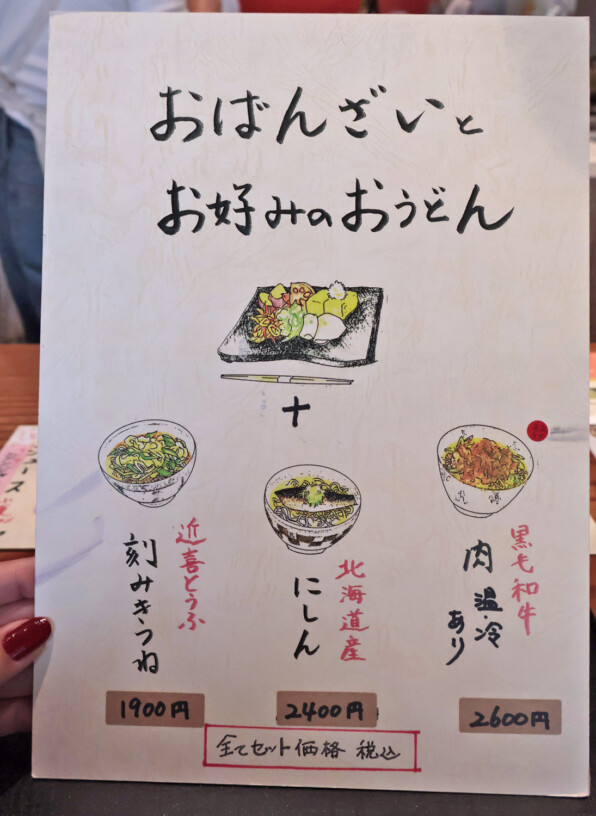 おばんざいと
お好みのおうどん
+
近喜とうふ
刻みきつね
1900円
北海道産
にしん
2400円
黒毛和牛
肉 温・冷
あり
2600円
全てセット価格 税込
ジュース